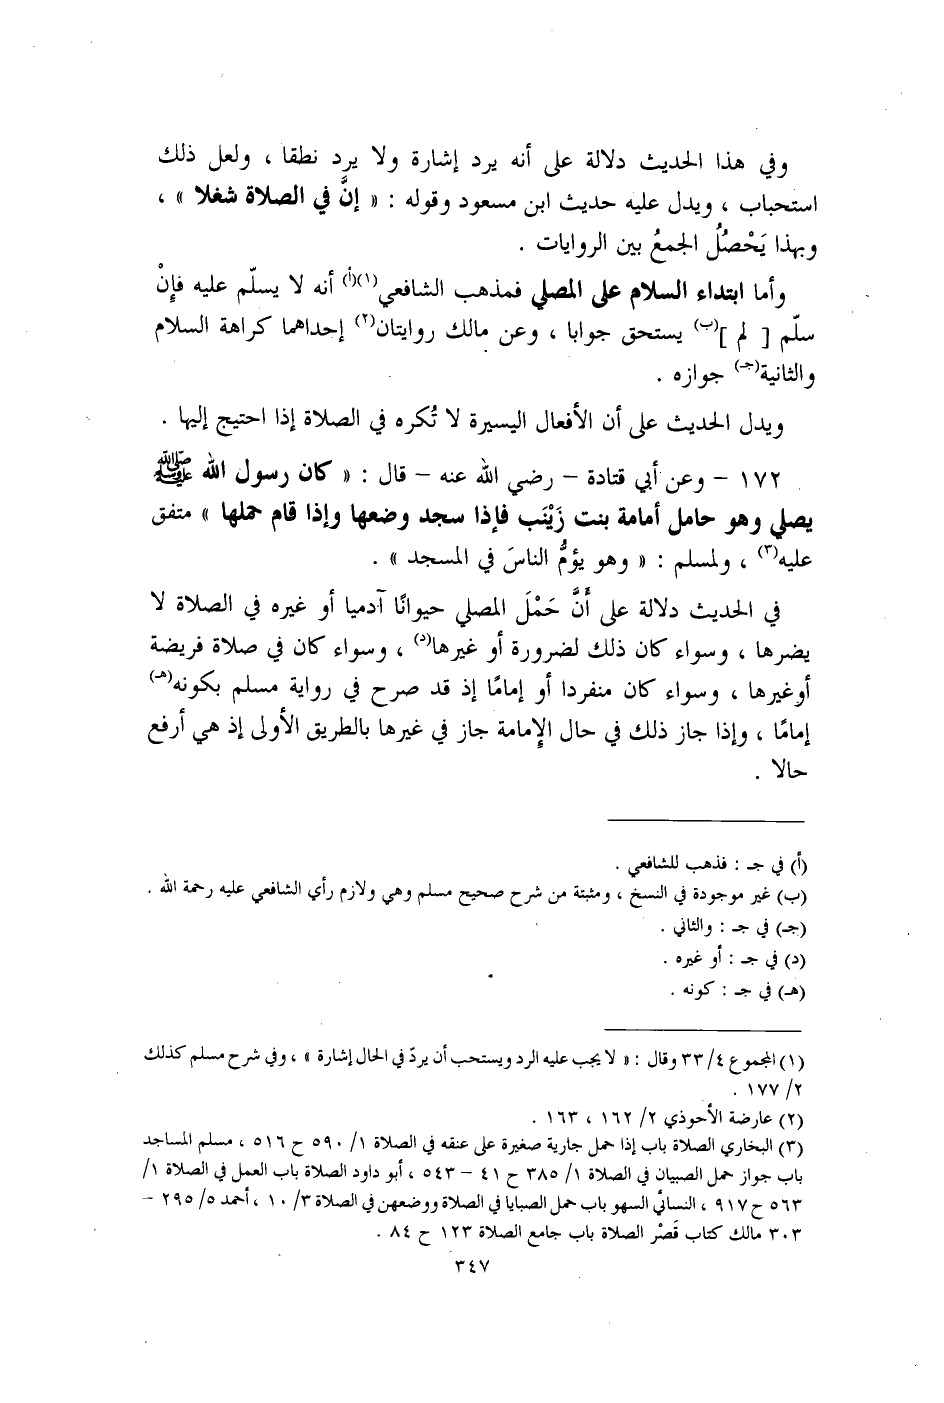 وفي هذا الحديث دلالة على أنه يرد إشارة ولا يرد نطقا ، ولعل ذلك
استحباب ، ويدل عليه حديث ابن مسعود وقوله : « إنَّ في الصلاة شغلا » ،
وبهذا يَحْصُلُ الجمعُ بين الروايات .
وأما ابتداء السلام على المصلي فمذهب الشافعي(١)(أ) أنه لا يسلّم عليه فإنْ
سلّم [ لم ](ب) يستحق جوابا ، وعن مالك روايتان(٢) إحداهما كراهة السلام
والثانية(جـ) جوازه .
ويدل الحديث على أن الأفعال اليسيرة لا تُكره في الصلاة إذا احتيج إليها .
١٧٢ – وعن أبي قتادة – رضي الله عنه – قال : « كان رسول الله ﷺ
يصلي وهو حامل أمامة بنت زَيْنَب فإذا سجد وضعها وإذا قام حملها » متفق
عليه(٣) ، ولمسلم : « وهو يؤمُّ الناسَ في المسجد » .
في الحديث دلالة على أَنَّ حَمْلَ المصلي حيوانًا آدميا أو غيره في الصلاة لا
يضرها ، وسواء كان ذلك لضرورة أو غيرها(د) ، وسواء كان في صلاة فريضة
أوغيرها ، وسواء كان منفردا أو إمامًا إذ قد صرح في رواية مسلم بكونه(هـ)
إمامًا ، وإذا جاز ذلك في حال الإمامة جاز في غيرها بالطريق الأولى إذ هي أرفع
حالا .
(أ) في جـ : فذهب للشافعي .
(ب) غير موجودة في النسخ ، ومثبتة من شرح صحيح مسلم وهي ولازم رأي الشافعي عليه رحمة الله .
(جـ) في جـ : والثاني .
(د) في جـ : أو غيره .
(هـ) في جـ : كونه .
(١) المجموع ٤/ ٣٣ وقال : « لا يجب عليه الرد ويستحب أن يردّ في الحال إشارة » ، وفي شرح مسلم كذلك
٢/ ١٧٧ .
(٢) عارضة الأحوذي ٢/ ١٦٢ ، ١٦٣ .
(٣) البخاري الصلاة باب إذا حمل جارية صغيرة على عنقه في الصلاة ١/ ٥٩٠ ح ٥١٦ ، مسلم المساجد
باب جواز حمل الصبيان في الصلاة ١/ ٣٨٥ ح ٤١ – ٥٤٣ ، أبو داود الصلاة باب العمل في الصلاة ١/
٥٦٣ ح ٩١٧ ، النسائي السهو باب حمل الصبايا في الصلاة ووضعهن في الصلاة ٣/ ١٠ ، أحمد ٥/ ٢٩٥ –
٣٠٣ مالك كتاب قَصْر الصلاة باب جامع الصلاة ١٢٣ ح ٨٤ .
٣٤٧